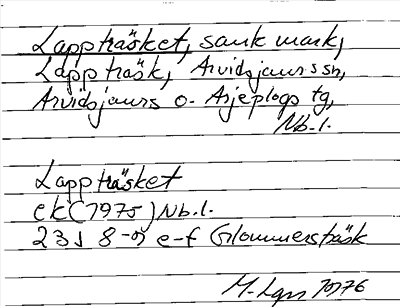 Lappträsket, sank mark,
Lappträsk, Arvidsjaurs sn,
Arvidsjaurs o. Arjeplogs tg,
Nb.l.
Lappträsket
ek (1975) Nb.l.
23J 8-9 e-f Glommersträsk
1976